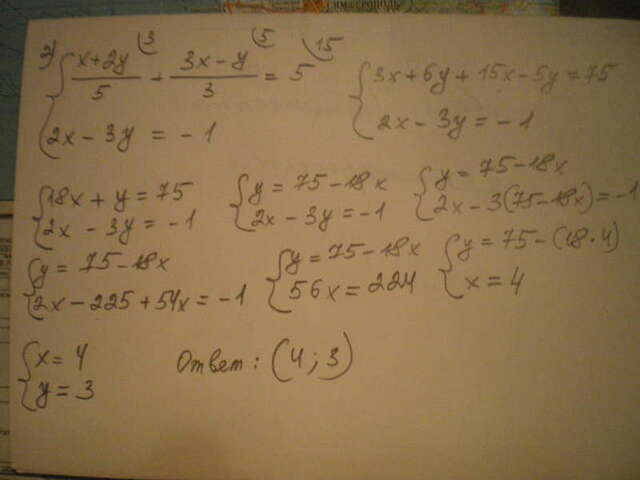 СИМФЕРОПОЛЬ
3) { (x+2y)/5 + (3x-y)/3 = 5 3 5 15
2x - 3y = -1
{ 3x + 6y + 15x - 5y = 75
2x - 3y = -1
{ 18x + y = 75
2x - 3y = -1
{ y = 75 - 18x
2x - 3y = -1
{ y = 75 - 18x
2x - 3(75 - 18x) = -1
{ y = 75 - 18x
2x - 225 + 54x = -1
{ y = 75 - 18x
56x = 224
{ y = 75 - (18 · 4)
x = 4
{ x = 4
y = 3
Ответ: (4; 3)